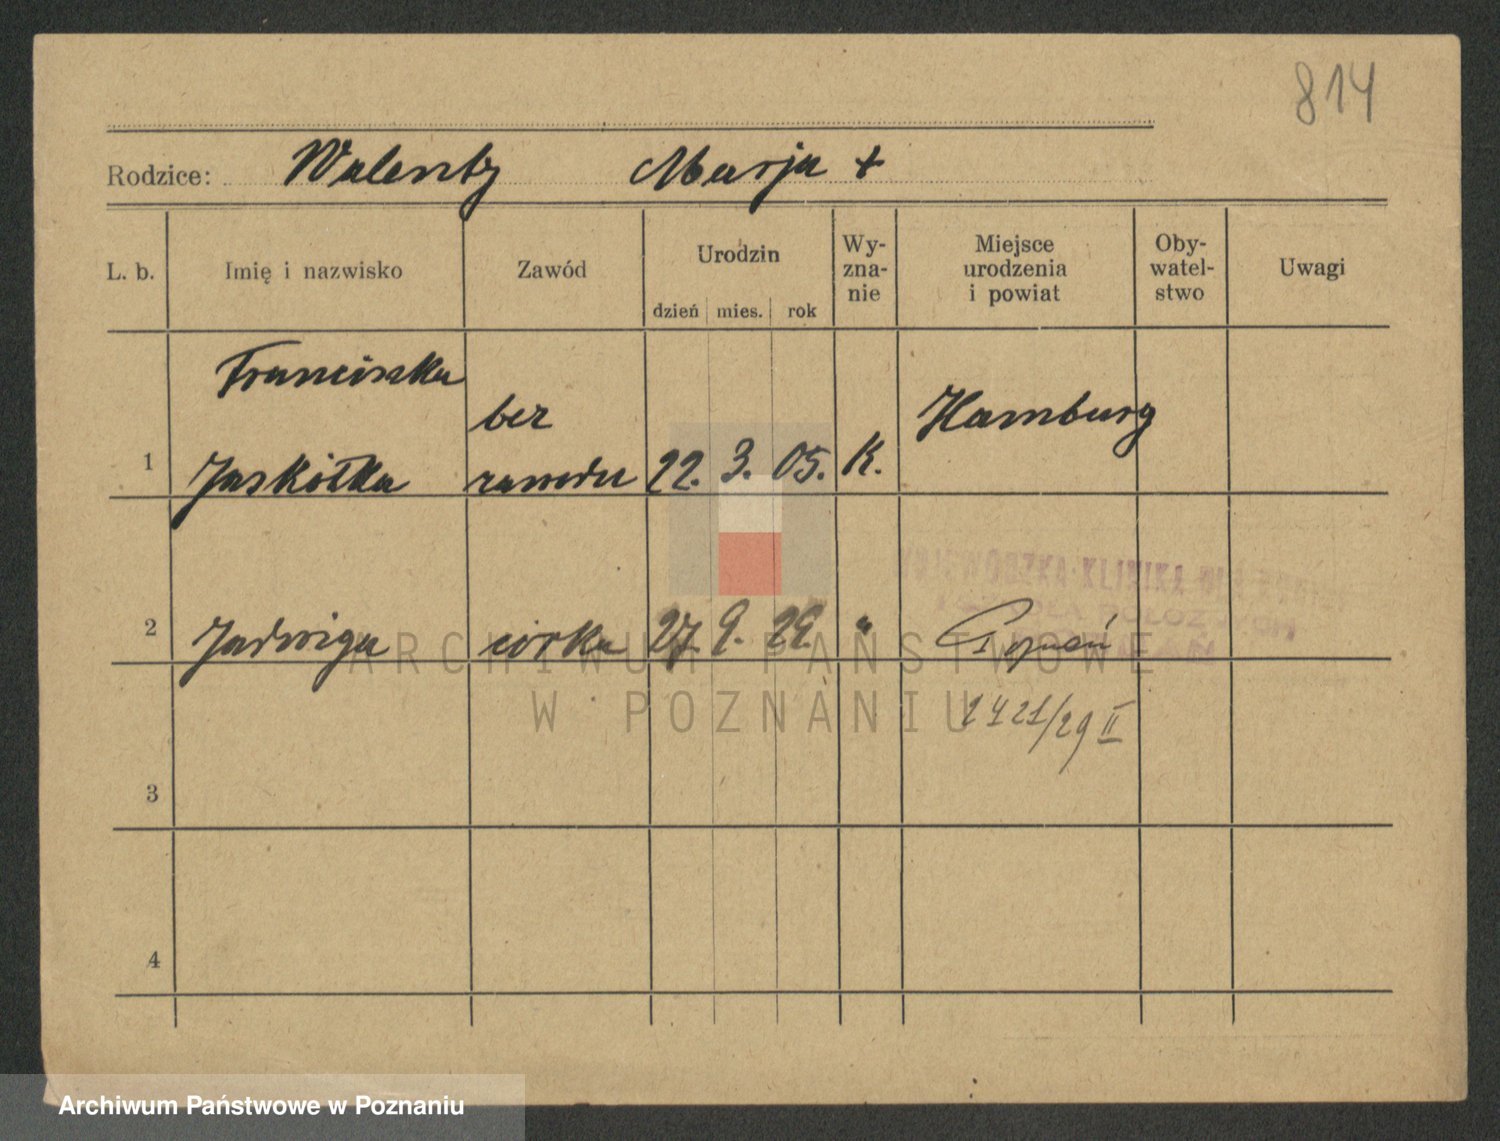 814
Rodzice: Walenty Marja +
L. b. Imię i nazwisko Zawód Urodzin Wy- zna- nie Miejsce urodzenia i powiat Oby- watel- stwo Uwagi
dzień mies. rok
Franciszka
bez Hamburg
1 Jaskółka zawodu 22. 3. 05. K.
WOJEWÓDZKA KLINIKA DLA
2 Jadwiga córka 27. 9. 29. " Poznań
2421/29 II
3
4
ARCHIWUM PAŃSTWOWE
W POZNANIU
Archiwum Państwowe w Poznaniu